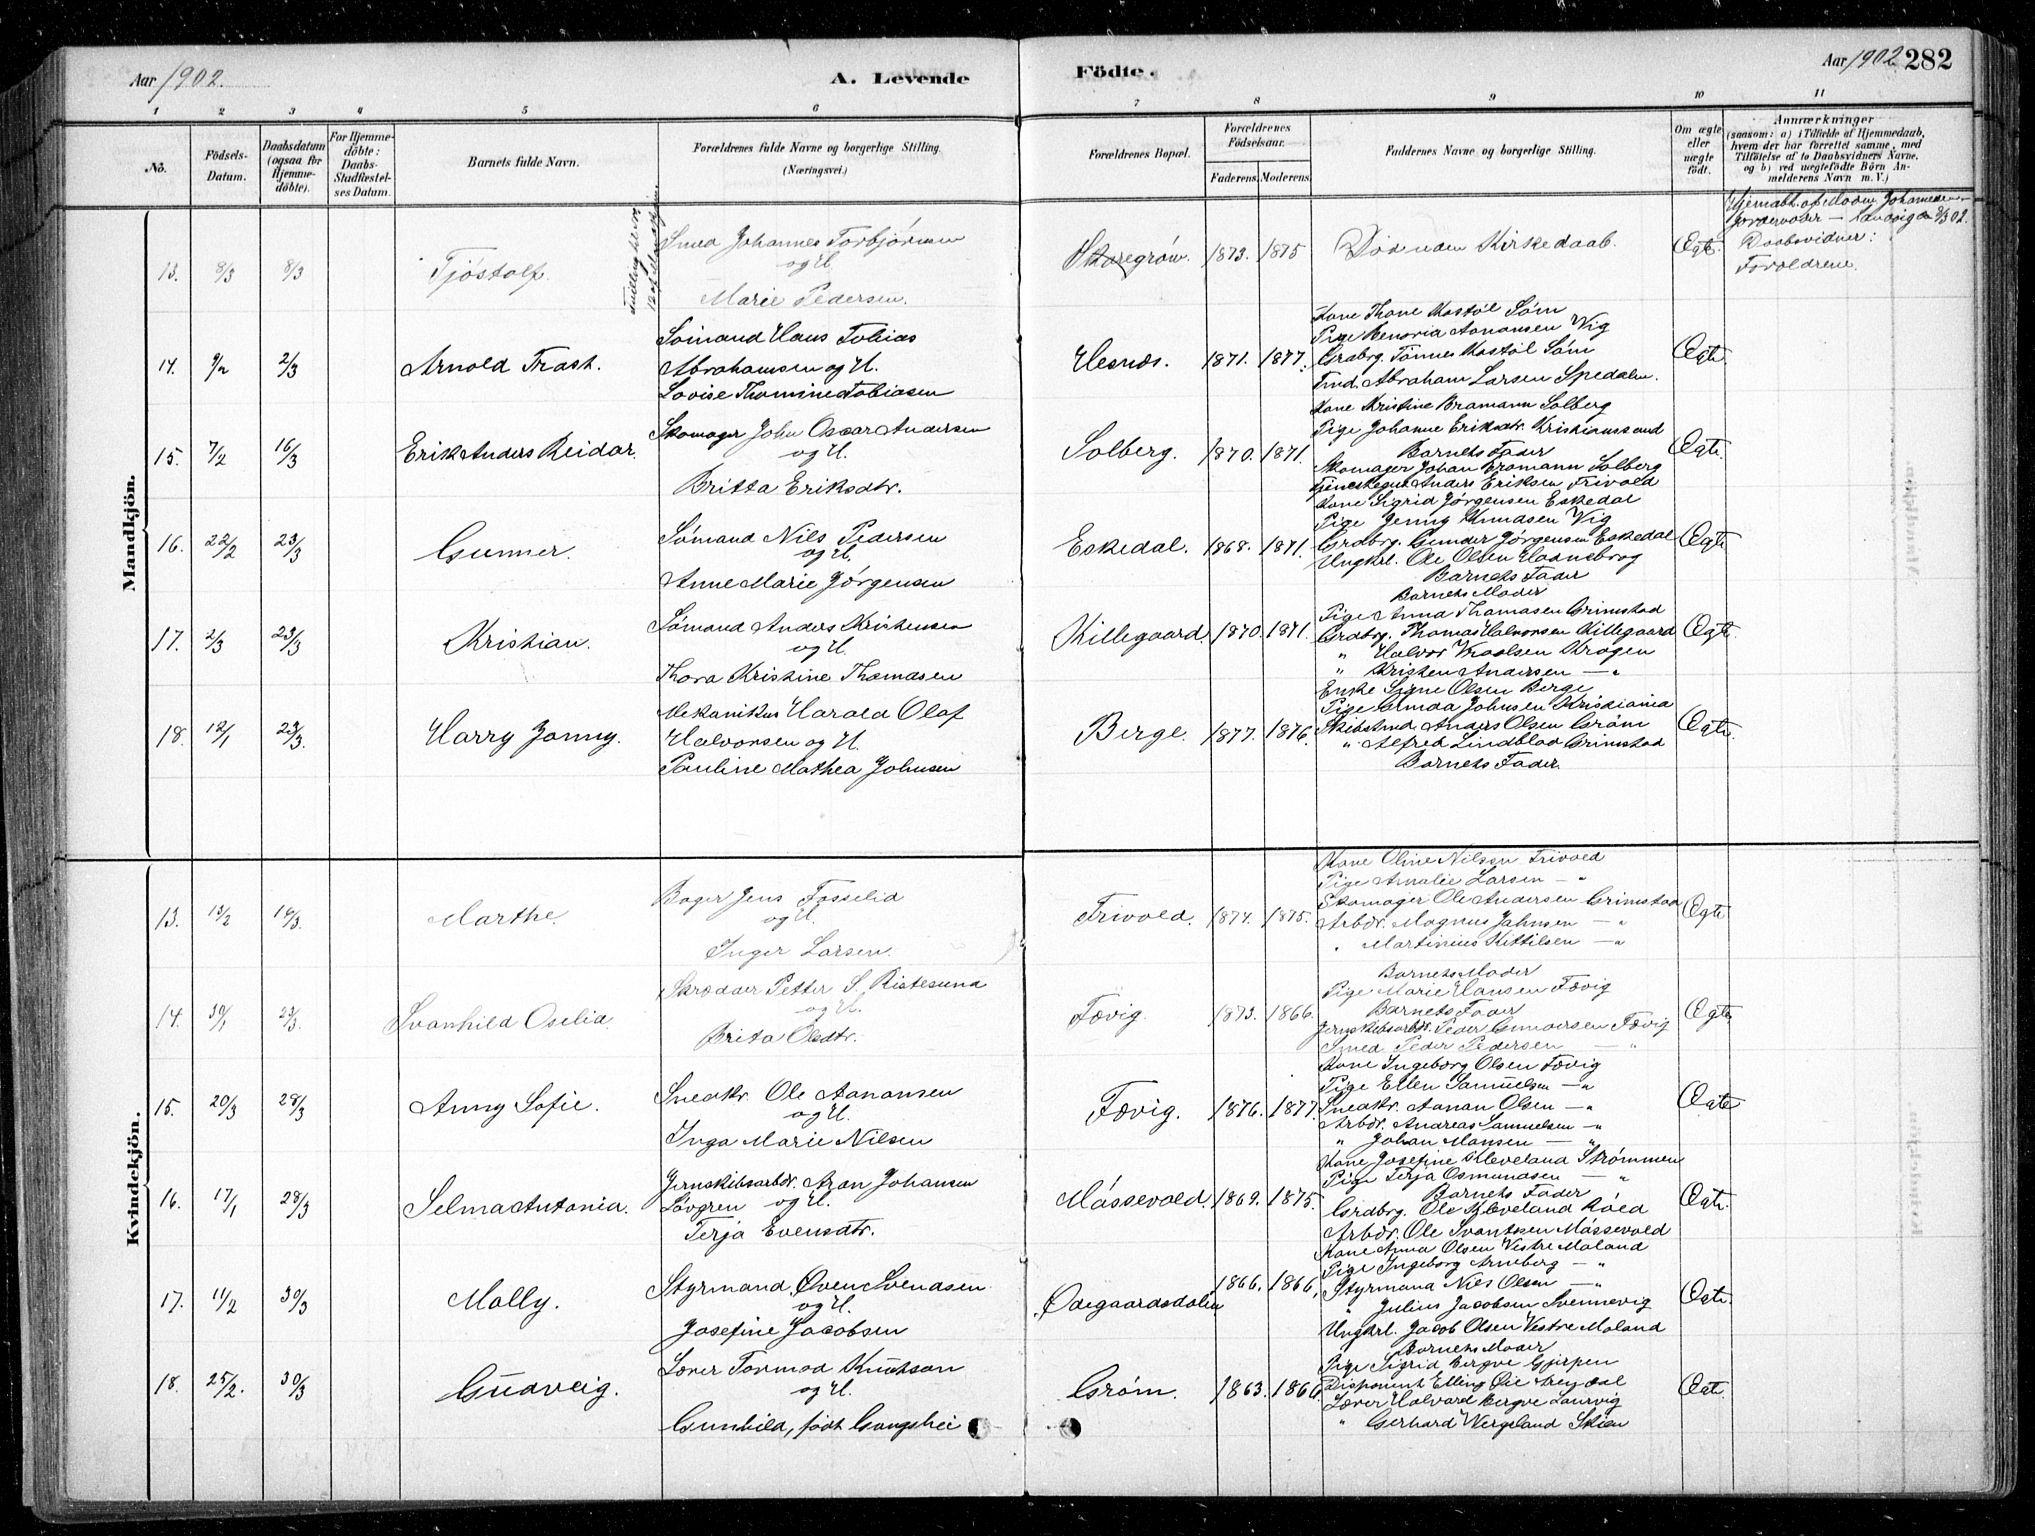 Aar 1902.
A. Levende
Födte.
Aar 1902 282
1 2 3 4 5 6 7 8 9 10 11
No.
Födsels-Datum.
Daabsdatum (ogsaa for Hjemme-döbte).
For Hjemme-döbte: Daabs-Stadfæstel-ses Datum.
Barnets fulde Navn.
Forældrenes fulde Navne og borgerlige Stilling. (Næringsvei.)
Forældrenes Bopæl.
Forældrenes Födselsaar.
Faderens. Moderens.
Faddernes Navne og borgerlige Stilling.
Om ægte eller uægte födt.
Anmærkninger (saasom: a) i Tilfælde af Hjemmedaab, hvem der har forrettet samme, med Tilföielse af to Daabsvidners Navne, og b) ved uægtefödte Börn An-melderens Navn m. V.)
Mandkjön.
13. 8/3 8/3 Tjöstolf.
Smed Johannes Torbjörnsen
og H.
Marie Pedersen.
1873. 1875 Död uden Kirkedaab. Egte.
Daabsvidner:
Forældrene.
14. 9/2 2/3 Arnold Trast.
Sömand Hans Tobias
Abrahamsen og H.
Lovise Thomine Tobiasen
Hesnes. 1871. 1877. Egte.
Kone Thone Kostöl Söm
Pige Benoria Aanonsen Vig
Grdbrg. Tönnes Kostöl Söm
Tmd. Abraham Larsen Spedalen.
15. 7/2 16/3 Erik Anders Reidar.
Skomager John Oscar Andersen
og H.
Britta Eriksdtr.
Solberg. 1870. 1871. Egte.
Kone Kristine Bromann Solberg
Pige Johanne Eriksdtr. Kristianssand
Barnets Fader
Skomager Johan Bromann Solberg
Anders Eriksen Frivold
16. 22/2 23/3 Gunner.
Sömand Nils Pedersen
og H.
Anne Marie Jörgensen
Eskedal. 1868. 1871. Egte
Kone Sigrid Jörgensen Eskedal
Pige Jenny Knudsen Vig
Grdbrg. Gunder Jörgensen Eskedal
Ungkrl. Ole Olsen Haanebrog
Barnets Fader
17. 2/3 23/3 Kristian.
Sömand Anders Kristensen
og H.
Thora Kristine Thomasen
Killegaard. 1870. 1871. Egte.
Barnets Moder
Pige Anna Thomasen Grimstad
Grdbrg. Thomas Halvorsen Killegaard
" Halvor Knoolsen Krogen
" Kristen Andersen — "
18. 12/1 23/3. Harry Jonny.
Mekanikus Harald Olaf
Halvorsen og H.
Pauline Mathea Johnsen
Berge. 1877. 1876. Egte.
Enke Signe Olsen Berge
Pige Johnsen Kristiania
Skibstmd Anders Olsen Gröm
" Alfred Lindblad Grimstad
Barnets Fader.
Kvindekjön.
13. 13/2 16/3. Marthe.
Bager Jens Fosselid
og H.
Inger Larsen.
Frivold. 1874. 1875. Egte
Kone Oline Nilsen Frivold
Pige Amalie Larsen — "
Skomager Ole Andersen Grimstad
Arbdr. Magnus Jahnsen — "
" Martinius Kittilsen — "
14. 30/1 23/3. Svanhild Oselia.
Skrædder Petter S. Ristesund
og H.
Brita Olsdtr.
Fævig. 1873. 1866. Egte
Barnets Moder
Pige Marie Hansen Fævig
Barnets Fader
Jernskibsarbdr. Peder Gundersen Fævig
Smed Peder Pedersen — "
15. 20/3 28/3 Anny Sofie.
Snedkr. Ole Aanonsen
og H.
Inga Marie Nilsen
Fævig. 1876. 1877. Egte
Kone Ingeborg Olsen Fævig
Pige Ellen Samuelsen — "
Snedkr. Aanon Olsen — "
Arbdr. Andreas Samuelsen — "
" Johan Monsen — "
16. 17/1 28/3 Selma Antonia.
Jernskibsarbdr. Aron Johansen
Lövgren og H.
Terja Evensdtr.
Mössevold. 1869. 1875. Egte.
Kone Josefine Kleveland Strömmen
Pige Terja Osmundsen — "
Barnets Fader
Grdbrg. Ole Kleveland Röed
Arbdr. Ole Mössevold
17. 11/2 30/3 Molly.
Styrmand Even Svendsen
og H.
Josefine Jacobsen
Ödegaardsdalen 1866. 1866. Egte.
Kone Anna Olsen Vestre Moland
Pige Ingeborg Arneberg — "
Styrmand Nils Olsen — "
" Julius Jacobsen Svennevig
Ungkrl. Jacob Olsen Vestre Moland
18. 25/2. 30/3 Gudveig.
Lærer Tormod Knutson
og H.
Gunhild, födt Gangshei
Gröm. 1863. 1866. Egte.
Barnets Moder
Pige Sigrid Bergve Gjerpen
Disponent Elling Lie Arendal
Lærer Halvard Bergve Laurvig
" Gerhard Wergeland Skien